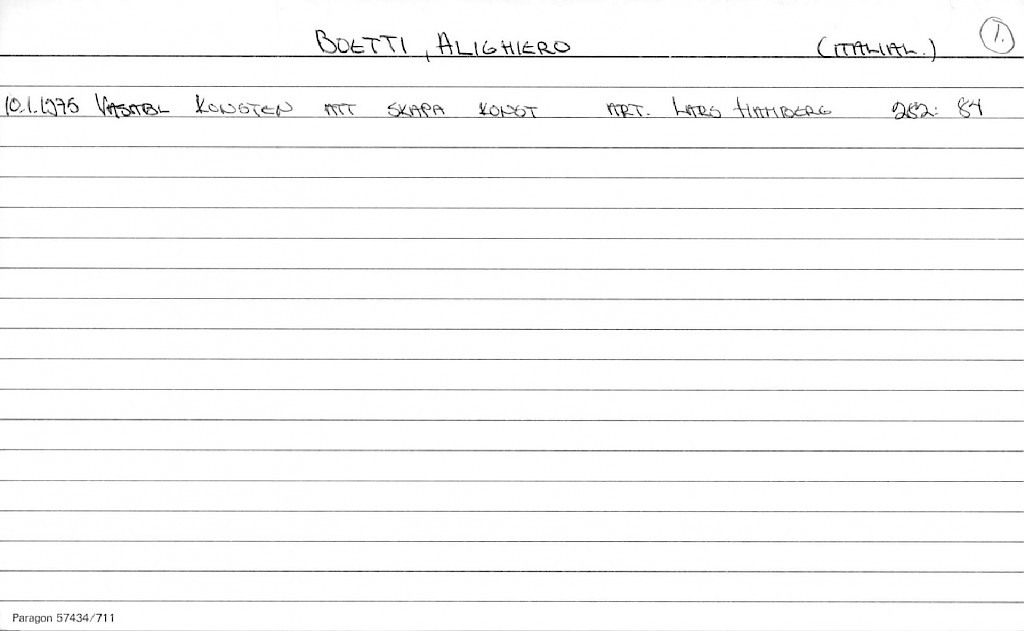 BOETTI, ALIGHIERO (ITALIAL.) 1.
10.1.1975 VASABL KONSTEN ATT SKAPA KONST ART. LARS HAMBERG 282: 84
Paragon 57434/711